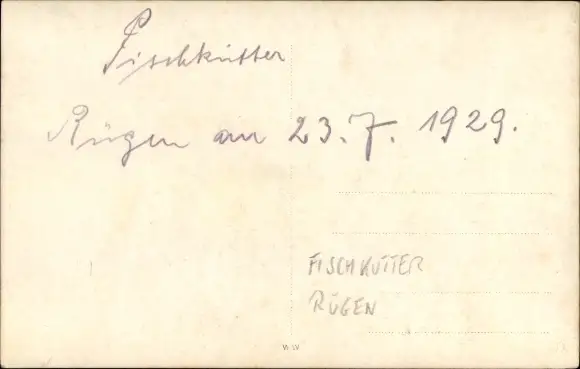 Fischkutter
Rügen am 23.7.1929.
FISCHKUTTER
RÜGEN
W.W.